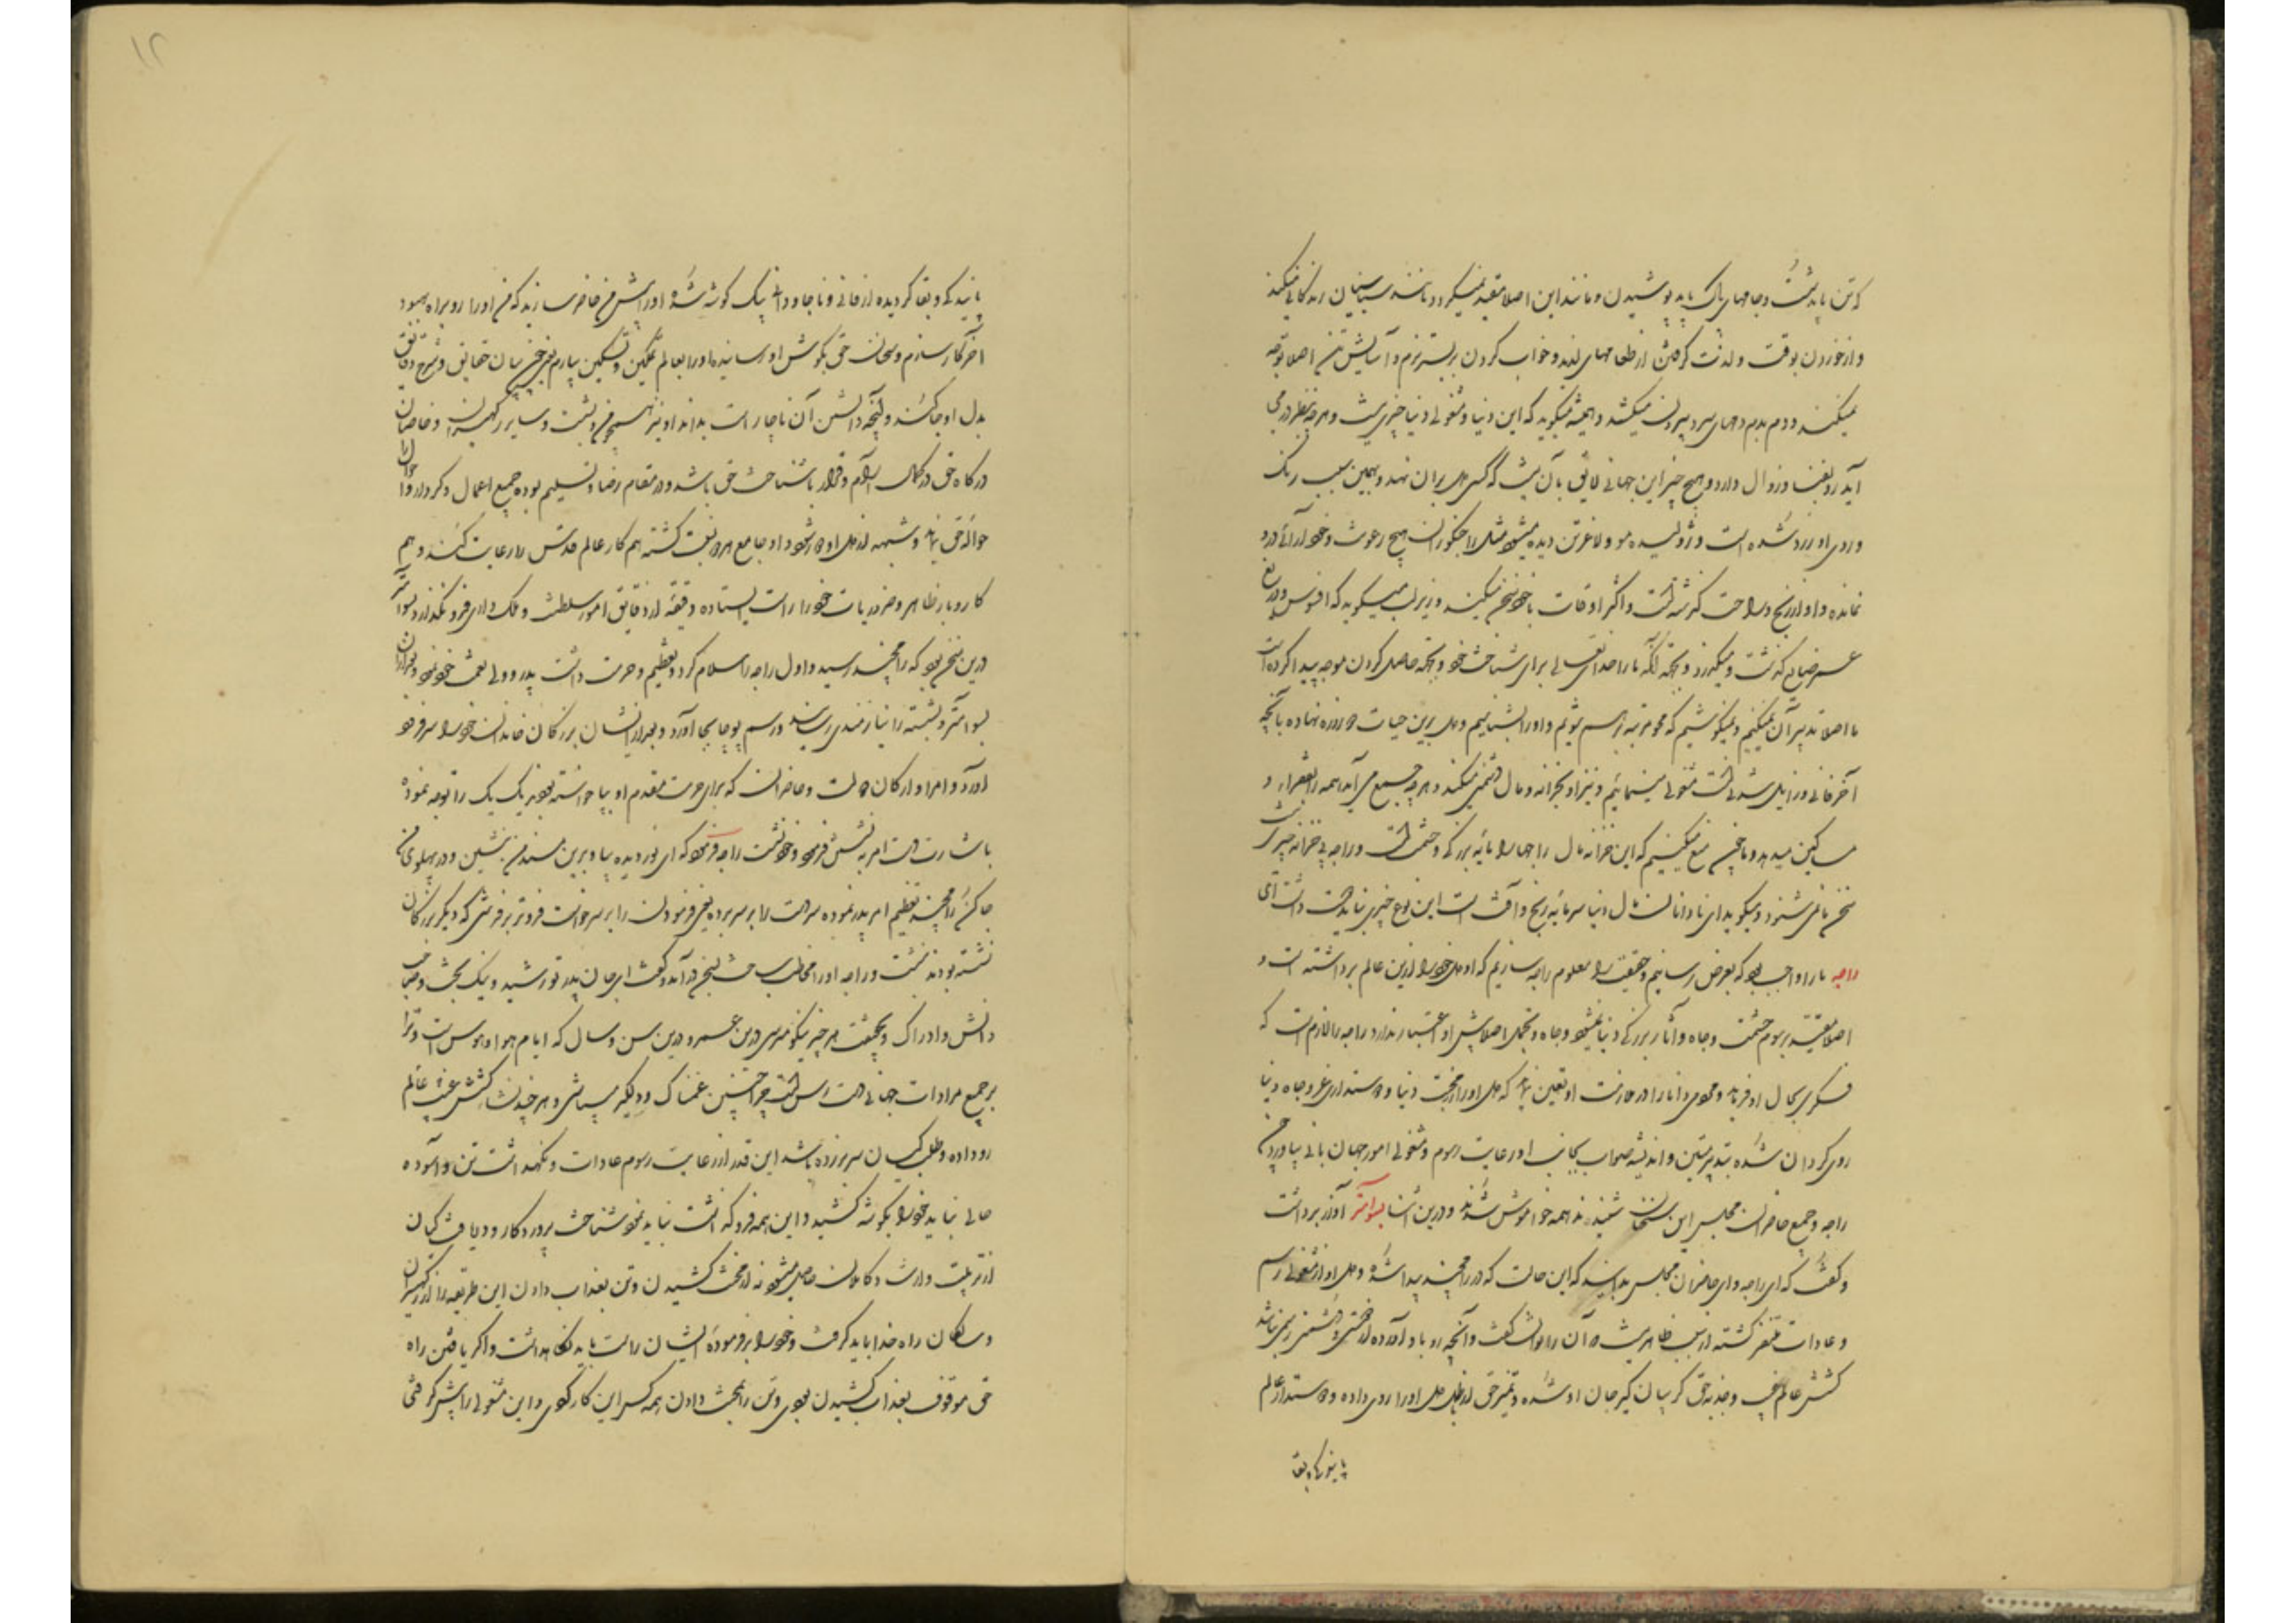 که تن باید شست و جامهای پاک باید پوشیدن و مانند این اصلا مقید نمیگردد و مانند سناسیان زندگانی میکند
و از خوردن بوقت و لذت گرفتن از طعامهای لذیذ و خواب کردن بر بستر نرم و آسایش تن اصلا توجه
نمیکند و دم بدم دمهای سرد بیرون میکشد و همیشه میگوید که این دنیا و مشغولی دنیا چیزی نیست و هرچه بنظر در می
آید رو بفنا و زوال دارد و هیچ چیز این جهانی لایق بآن نیست که کسی دل بران نهد و بهمین سبب رنگ
و روی او زرد شده است و ژولیده مو و لاغر تن دیده میشود مثل راجکوران هیچ رعونت و خودآرائی درو
نمانده و او از رنج و راحت گذشته است و اکثر اوقات با خود سخن میکند و زیر لب میگوید که افسوس و دریغ
عمر ضایع گذشت و میگذرد و بجهت آنکه ما را خدای تعالی برای شناخت خود و بجهت حاصل کردن موجه پیدا کرده است
ما اصلا تدبیر آن نمیکنیم و نمیکوشیم که محو مرتبه برهم شویم و او را بشناسیم و دل برین حیات دو روزه نهاده بآنچه
آخر فانی و زایل شدنی است مشغولی مینمائیم و نیز او بخزانه و مال دشمنی میکند و هرچه جمع می آید همه را بفقرا و
مساکین میدهد و ما چون منع میکنیم که این خزانه مال راجها را مایه بزرگی و حشمت است و راجه بی خزانه چیزی نیست
سخن ما نمی شنود و میگوید ای نادانان مال دنیا سرمایه رنج و آفت است این نوع چیزی نباید دوست داشت ای
راجه ما را واجب بود که بعرض رسانیم و حقیقت را معلوم راجه سازیم که او دل خود را ازین عالم برداشته است و
اصلا مقید برسوم حشمت و جاه و آثار بزرگی دنیا نمیشود و جاه و تجمل اصلا پیش او اعتبار ندارد راجه را لازم است که
فکری بحال او فرماید و مردی دانا را در خدمت او تعین نماید که دل او را از محبت دنیا و دوستداری عز و جاه دنیا
روی گردان شده بتدبیر متین و اندیشه صواب بجانب او رعایت رسوم و مشغولی امور جهان بانی بیاورد چون
راجه و جمیع حاضران مجلس این سخنان شنیدند همه خاموش شدند و درین اثنا بسوامتر آواز برداشت
و گفت که ای راجه و ای حاضران مجلس بدانید که این حالت که در رامچند پیدا شده و دل او از مشغولی رسم
و عادات متنفر گشته از سبب ظاهر نیست و آن را نتوانست گفت و آنچه رو باو آورده از خشمی و دشمنی نمی باشد
کشش عالم غیب و جذبه حق گریبان گیر جان او شده و تمیز حق از باطل دل او را روی داده و دوستدار عالم
پایندگی و بقا
پایندگی و بقا گردیده از فانی و ناجاودانی پیک گوشه شده او را پیش من حاضر سازید که من او را رو براه بهبود
آخر کار سازم و سخنان حق بگوش او رسانیده او را بعالم تمکین و تسکین بیارم یعنی من بیان حقایق و شرح دقایق
بدل او جا کند و آنچه دانستن آن ناچار است بداند او نیز همچو من و بشست و سایر رکهیسران و خاصان
درگاه حق در کمال آرام و قرار با شناخت حق باشد و در مقام رضا و تسلیم بوده جمیع اعمال و کردار و احوال را
حواله حق نماید و شبهه از دل او دور شود و او جامع هر دو نعمت گشته هم کار عالم قدس را رعایت کند و هم
کاروبار ظاهر و ضروریات خود را راست ایستاده دقیقه از دقایق امور سلطنت و ملک داری فرو نگذارد بسوامتر
درین سخن بود که رامچند رسید و اول راجه را سلام کرد و تعظیم و حرمت داشت پدر و ولی نعمت خود نمود و بعد ازان
بسوامتر و بشسته را نیازمندی رسانید و رسم پوجا بجا آورد و بعد از ایشان بزرگان خاندان خود را سر فرود
آورد و امرا و ارکان دولت و حاضران که برای حرمت مقدم او بپا خواسته بودند یک یک را توجه نمود
باشارت دست امر به نشستن فرمود و خود نشست راجه فرمود که ای نور دیده بیا و برین مسند من بنشین و در پهلوی من
جا کن رامچند تعظیم امر پدر نموده سر دست را بر سر برده یعنی فرمودن را بر سر خواست فروتر بر فرشی که دیگر بزرگان
نشسته بودند نشست و راجه او را مخاطب ساخت بسخن در آمد و گفت ای جان پدر تو رشید و نیک بخت و صاحب
دانش و ادراک و بحقیقت هر چیز نیکو میرسی درین عمر و درین سن و سال که ایام هوا و هوس است و ترا
بر جمیع مرادات جهانی دست رس است چرا چنین غمناک و دلگیر میباشی و هر چند ترا کشش غیب عالم
رو داده و طلب کیان سر بر زده باشد این قدر از رعایت رسوم عادات و نگهداشت تن و آسوده
حالی نباید خود را بگوشه کشید و این همه فروگذاشت نباید نمود شناخت پروردگار و دریافت گیان
از تربیت وارث و کاملان حاصل میشود نه از محنت کشیدن و تن بعذاب دادن این طریقه را از رکهیسران
و سالکان راه خدا باید گرفت و خود را بر فرموده ایشان راست باید نگاه داشت و اگر یافتن راه
حق موقوف بعذاب کشیدن بودی و تن را بمحنت دادن همه کس این کار کردی و این مشغولی را پیش گرفتی